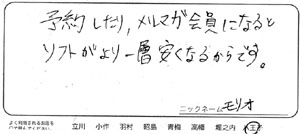 予約したり、メルマガ会員になると
ソフトがより一層安くなるからです。
ニックネーム モリオ
よく利用されるお店を
○で囲んでください。
立川 小作 羽村 昭島 青梅 高幡 堀之内 八王子